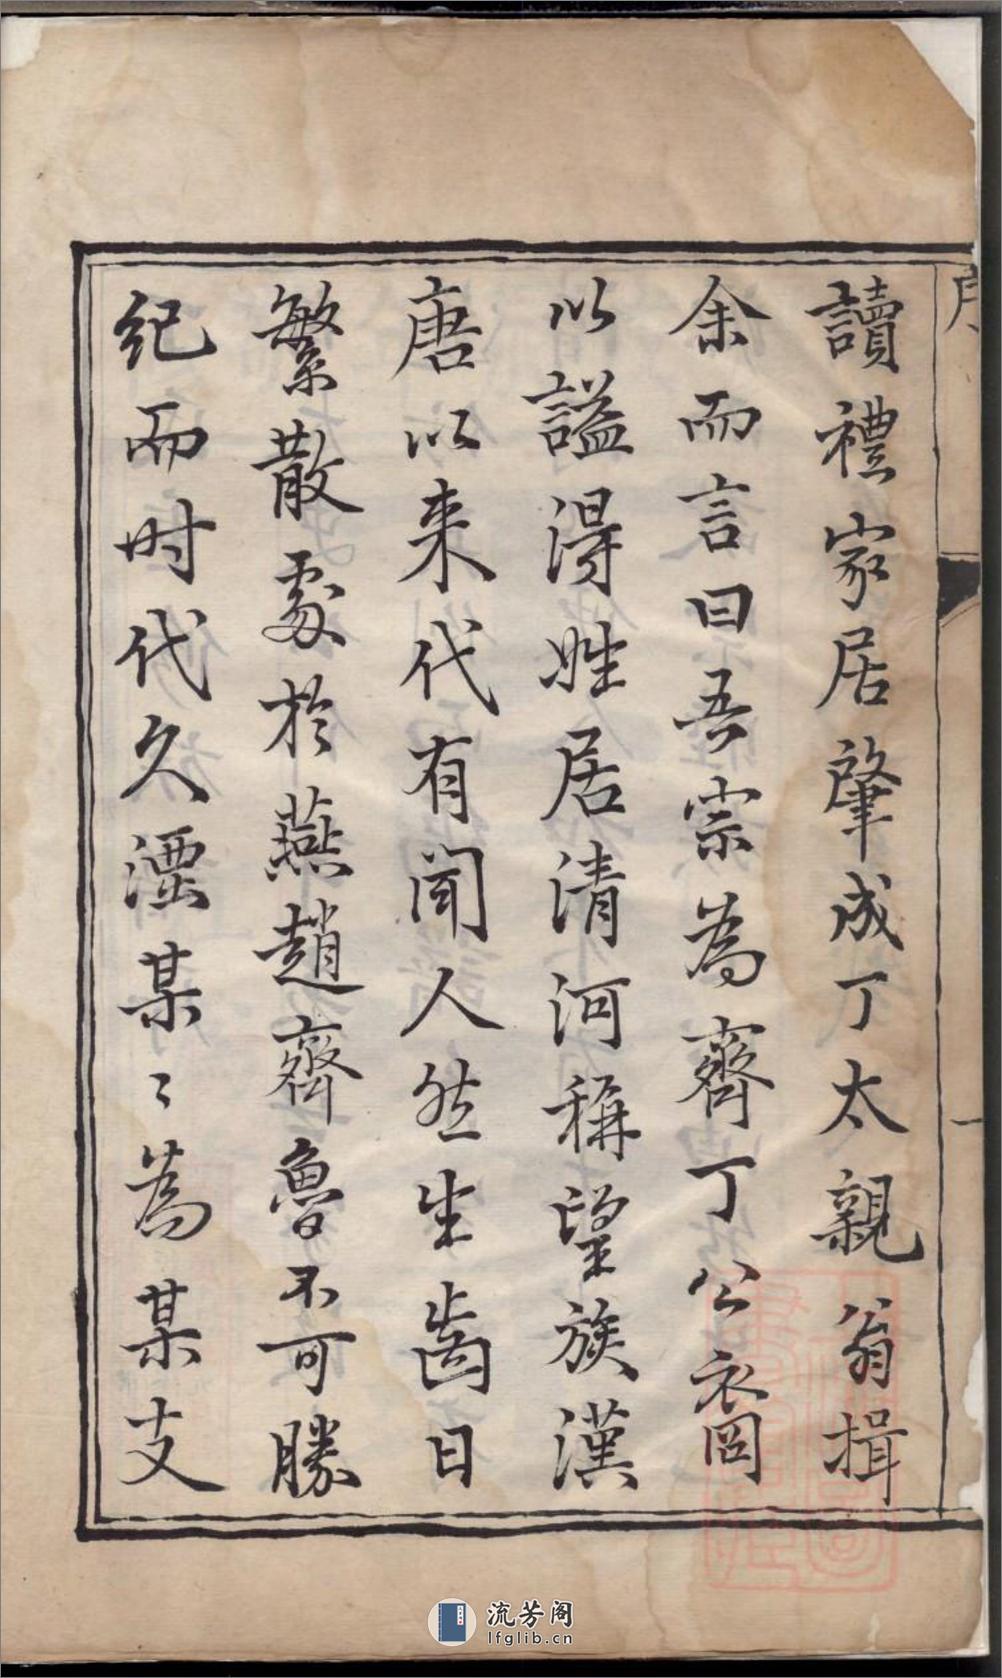 序
一
讀禮家居肇成丁太親翁揖
余而言曰吾宗為齊丁公裔
以謚淂姓居清河稱望族漢
唐以来代有闻人然生齒日
繁散處於燕趙齊魯不可勝
紀而时代久湮某〻為某支
流芳阁
lfglib.cn